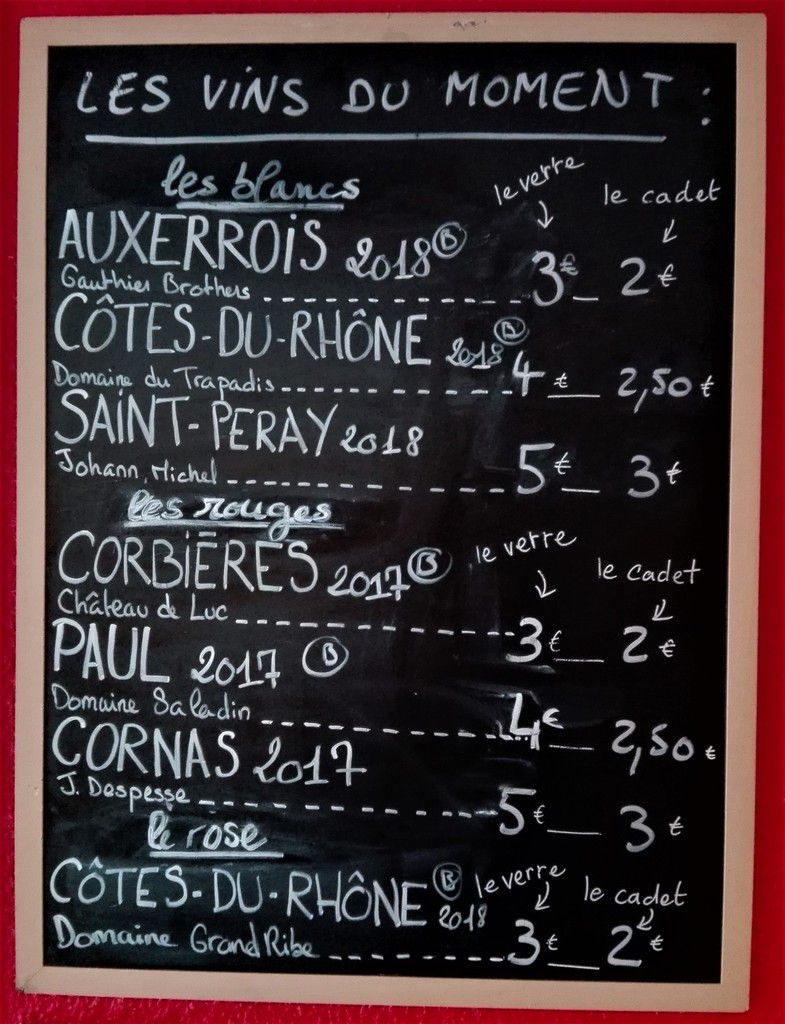 LES VINS DU MOMENT :
les blancs le verre le cadet
AUXERROIS 2018 B 3€ 2€
Gauthier Brothers
CÔTES-DU-RHÔNE 2018 B 4€ 2,50€
Domaine du Trapadis
SAINT-PERAY 2018 5€ 3€
Johann Michel
les rouges
CORBIÈRES 2017 B le verre le cadet
Château de Luc 3€ 2€
PAUL 2017 B
Domaine Saladin 4€ 2,50€
CORNAS 2017
J. Despesse 5€ 3€
le rose
CÔTES-DU-RHÔNE 2018 B le verre le cadet
Domaine Grand Ribe 3€ 2€